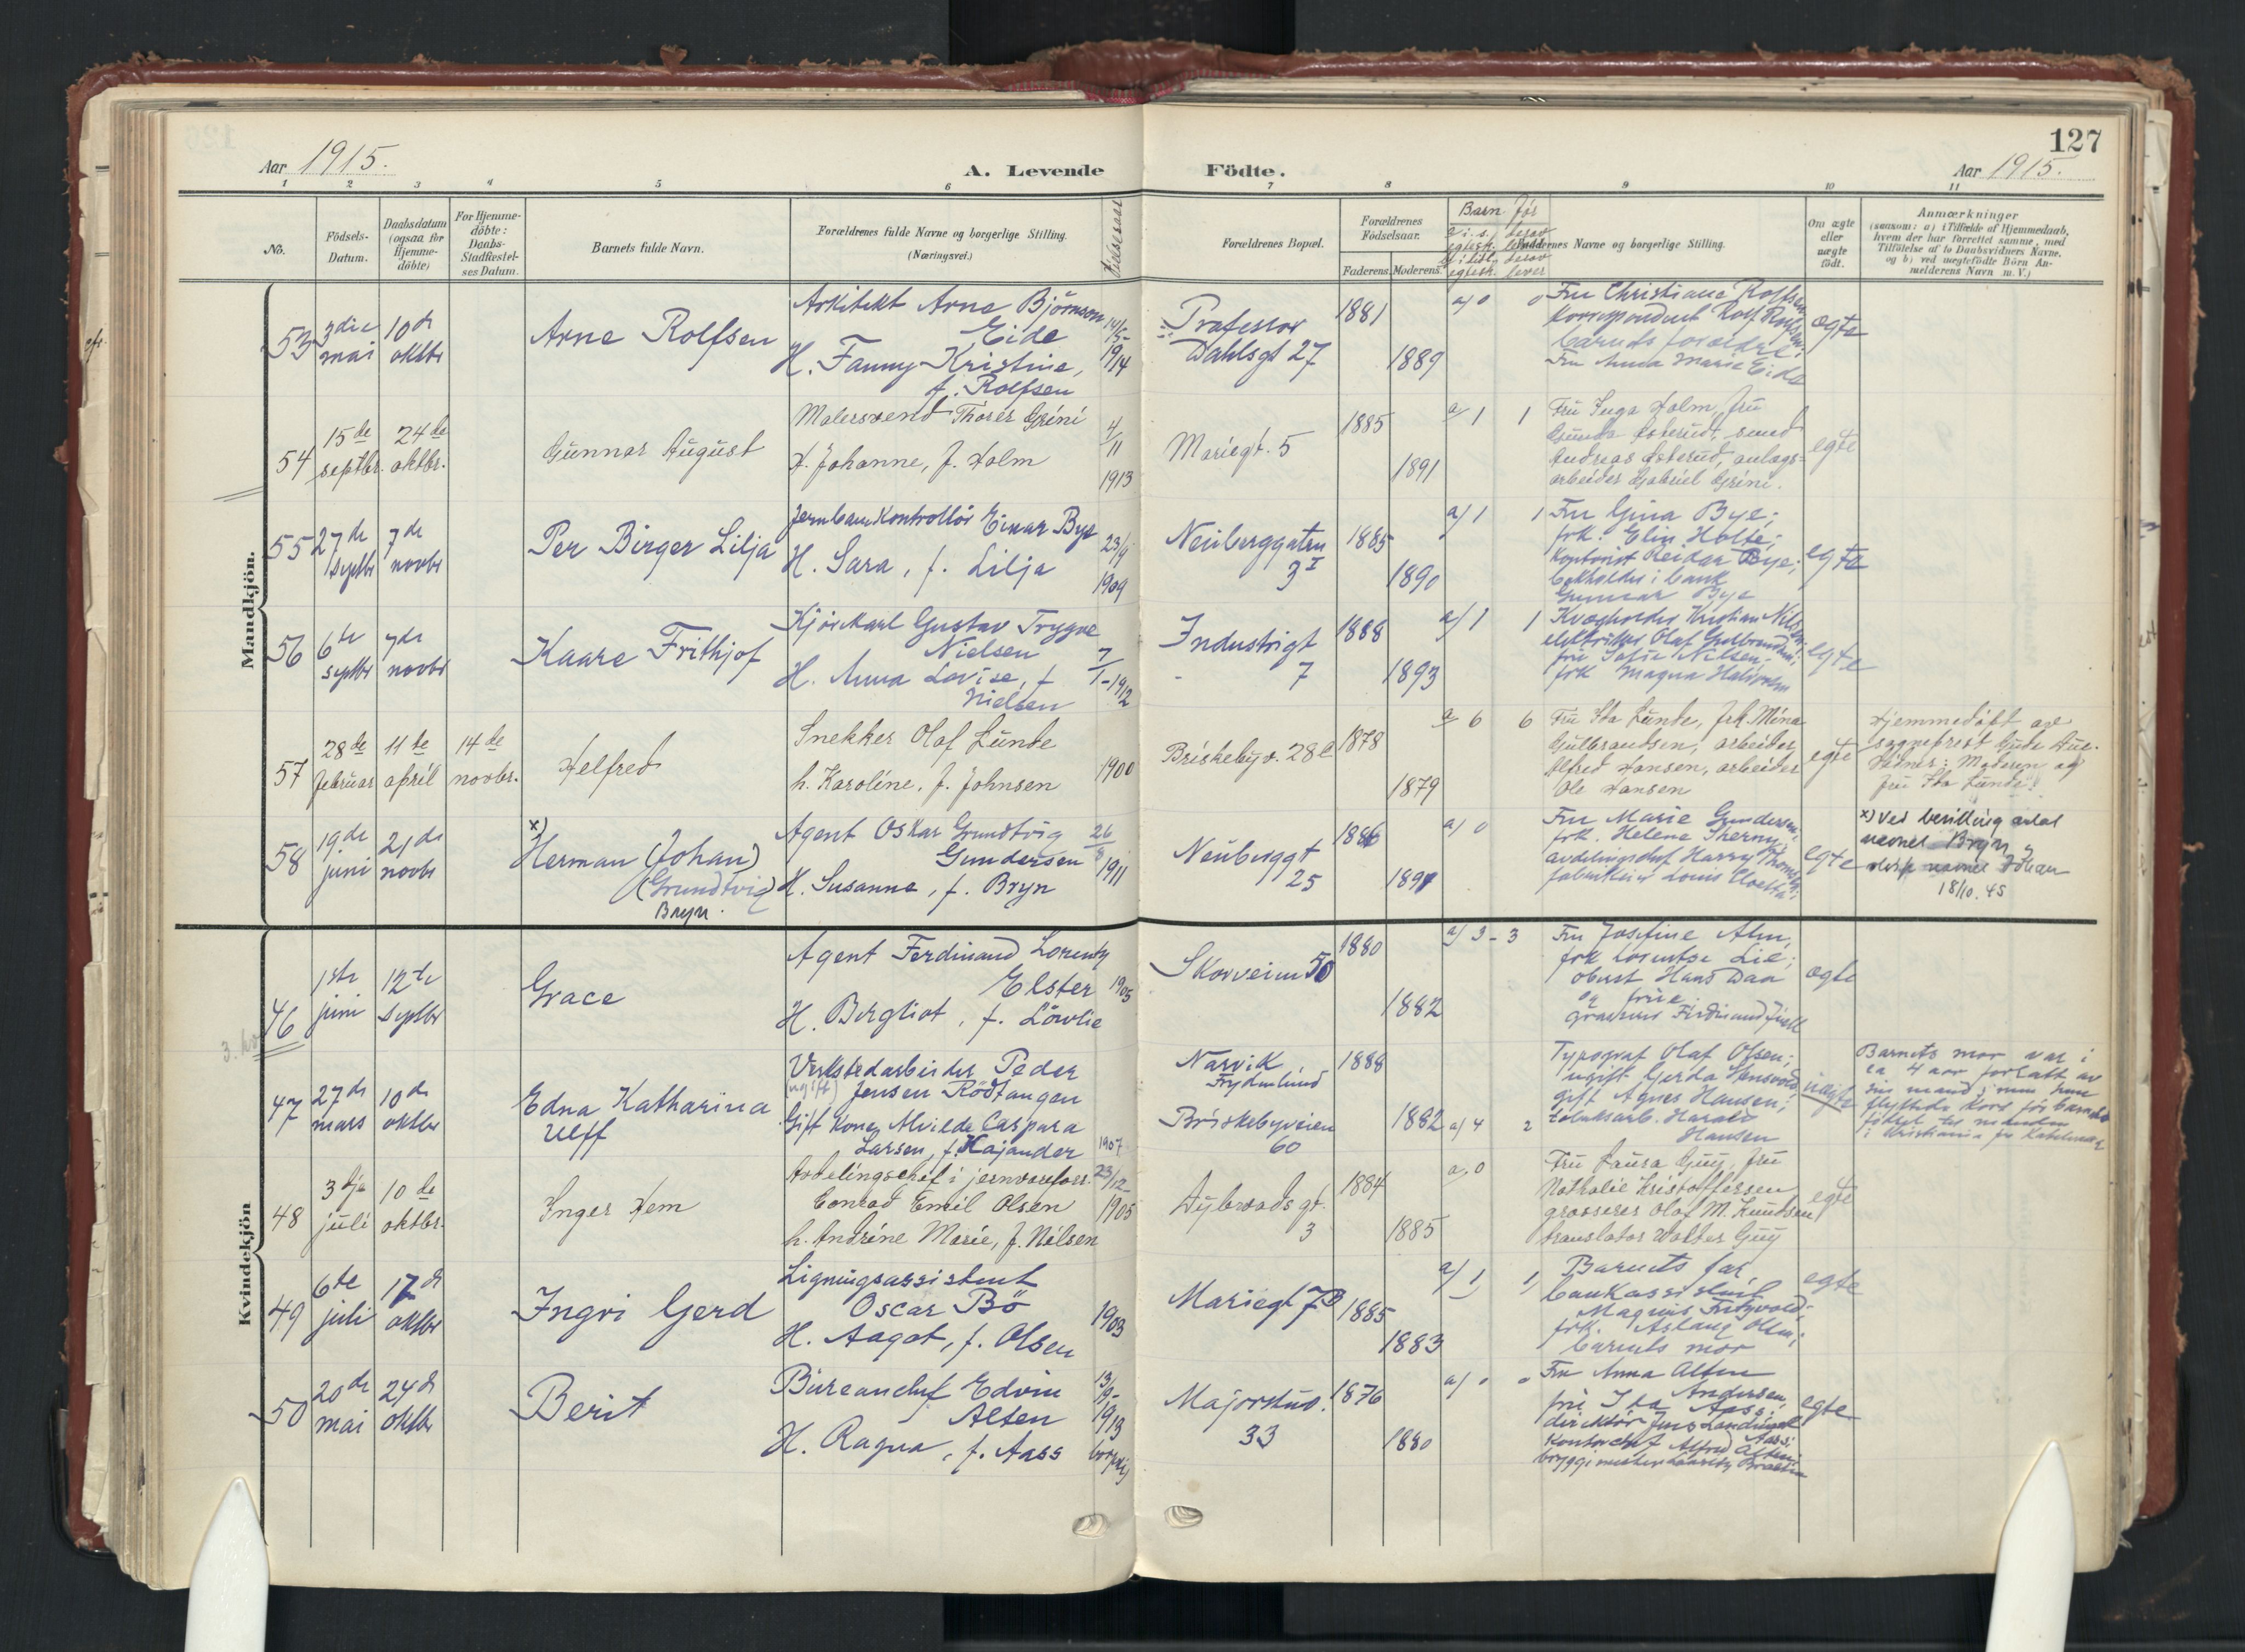 127
Aar 1915.
A. Levende Födte.
Aar 1915.
1 2 3 4 5 6 7 8 9 10 11
No.
Födsels-
Datum.
Daabsdatum
(ogsaa for
Hjemme-
döbte)
For Hjemme-
döbte:
Daabs-
Stadfæstel-
ses Datum.
Barnets fulde Navn.
Forældrenes fulde Navne og borgerlige Stilling.
(Næringsvei.)
Vielsesaar
Forældrenes Bopæl.
Forældrenes
Födselsaar.
Faderens. Moderens.
Barn før
Faddernes Navne og borgerlige Stilling.
Om ægte
eller
uægte
födt.
Anmærkninger
(saasom: a) i Tilfælde af Hjemmedaab,
hvem der har forrettet samme, med
Tilföielse af to Daabsvidners Navne.
og b) ved uegtefödte Börn An-
melderens Navn m. V.)
Mandkjön.
53
3die
mai
10de
oktbr
Arne Rolfsen
Arkitekt Arne Björnson
Eide
H. Fanny Kristine,
f. Rolfsen
14/5
1914
Professor
Dahlsgt 27
1881
1889
a/ 0 0
Fru Christiane Rolfsen
korrespondent Rolf Rolfsen;
barnets forældre;
Fru Anna Marie Eide
ægte
54
15de
septbr.
24de
oktbr.
Gunnar August
Malersvend Thorer Grini
H. Johanne, f. Holm
4/11
1913
Mariegt. 5
1885
1891
a/ 1 1
Fru Inga Holm, fru
Gunda Østerud, smed
Andreas Østerud, anlægs-
arbeider Gabriel Grini.
egte
55
27de
septbr
7de
novbr
Per Birger Lilja
Jernbanekontrollör Einar Bye
H. Sara, f. Lilja
23/9
1909
Neuberggaten
3 I
1885
1890
a/ 1 1
Fru Gina Bye;
frk. Elin Holte;
kontorist Reidar Bye;
bokholder i bank
Gunnar Bye
egte
56
6te
septbr
7de
novbr
Kaare Frithjof
Kjörekarl Gustav Trygve
Nielsen
H. Anna Lovise, f.
Nielsen
7/1-1912
Industrigt
7
1888
1893
a/ 1 1
Kristian Nilsen;
elektriker Olaf Gulbrandsen;
fru Sofie Nilsen;
frk Magna Halvorsen
egte
57
28de
februar
11te
april
14de
novbr.
Helfred
Snekker Olaf Lunde
h. Karoline, f. Johnsen
1900
Briskebyv. 28
1878
1879
a/ 6 6
Fru Ida Lunde, frk. Mina
Gulbrandsen, arbeider
Alfred Hansen, arbeider
Ole Hansen
egte
Hjemmedöbt av
sogneprest Gude Due.
Vidner: Moderen og
fru Ida Lunde.
58
19de
juni
21de
novbr
x)
Herman (Johan)
(Grundtvig)
Bryn.
Agent Oskar Grundtvig
Gundersen
H. Susanne, f. Bryn
26/8
1911
Neuberggt
25
1886
1891
a/ 0
Fru Marie Gundersen;
frk. Helene
avdelingschef Harry
Louis
egte
x) Ved bevilling
navnet Bryn,
navnet Johan
18/10. 45
Kvindekjön
46
1ste
juni
12te
septbr
Grace
Agent Ferdinand Lorentz
Elster
H. Bergliot, f. Lövlie
1905
Skovveien 50
1880
1882
a/ 3 - 3
Fru Josefine Alm,
frk Lorentse Lie;
oberst Hans Daa
og frue.
Ferdinand
ægte
3. kv
47
27de
mars
10de
oktbr
Edna Katharina
Ulff
Verkstedarbeider Peder
(ugift) Jensen Rödtangen
Gift Kone, Alvilde Caspara
Larsen, f. Kajander
1907
Narvik
Frydenlund
Briskebyveien
60
1888
1882
a/ 4 2
Typograf Olaf Olsen;
ugift Gerda
gift Agnes Hansen;
tobaksarb. Harald
Hansen
uegte
Barnets mor var i
ca 4 aar forlatt av
sin mand;
48
3dje
juli
10de
oktbr.
Inger Hem
Avdelingschef i jernvareforr.
Conrad Emil Olsen
h. Andrine Marie, f. Nilsen
23/12
1905
Dybwads gt.
3
1884
1885
a. 0
Fru Laura Guy, fru
Nathalie Kristoffersen
grosserer Olaf M. Knudsen
translatør Walter Guy
egte
49
6te
juli
17de
oktbr
Ingri Gerd
Ligningsassistent
Oscar Bö
H. Aagot, f. Olsen
1903
Mariegt 7B
1885
1883
a/ 1 1
Barnets far,
bankassistent
Magnus
frk. Aslaug Olsen;
barnets mor
egte
50
20de
mai
24de
oktbr
Berit
Bureauchef Edvin
Alten
H. Ragna, f. Aass
13/9-
1913
borgerlig
Majorstuv.
33
1876
1880
a/ 0 0
Fru Anna Alten
Andersen,
frue Ida Aass;
direktör Jens
Kontorchef Alfred Alten;
bryggermester Lauritz
egte